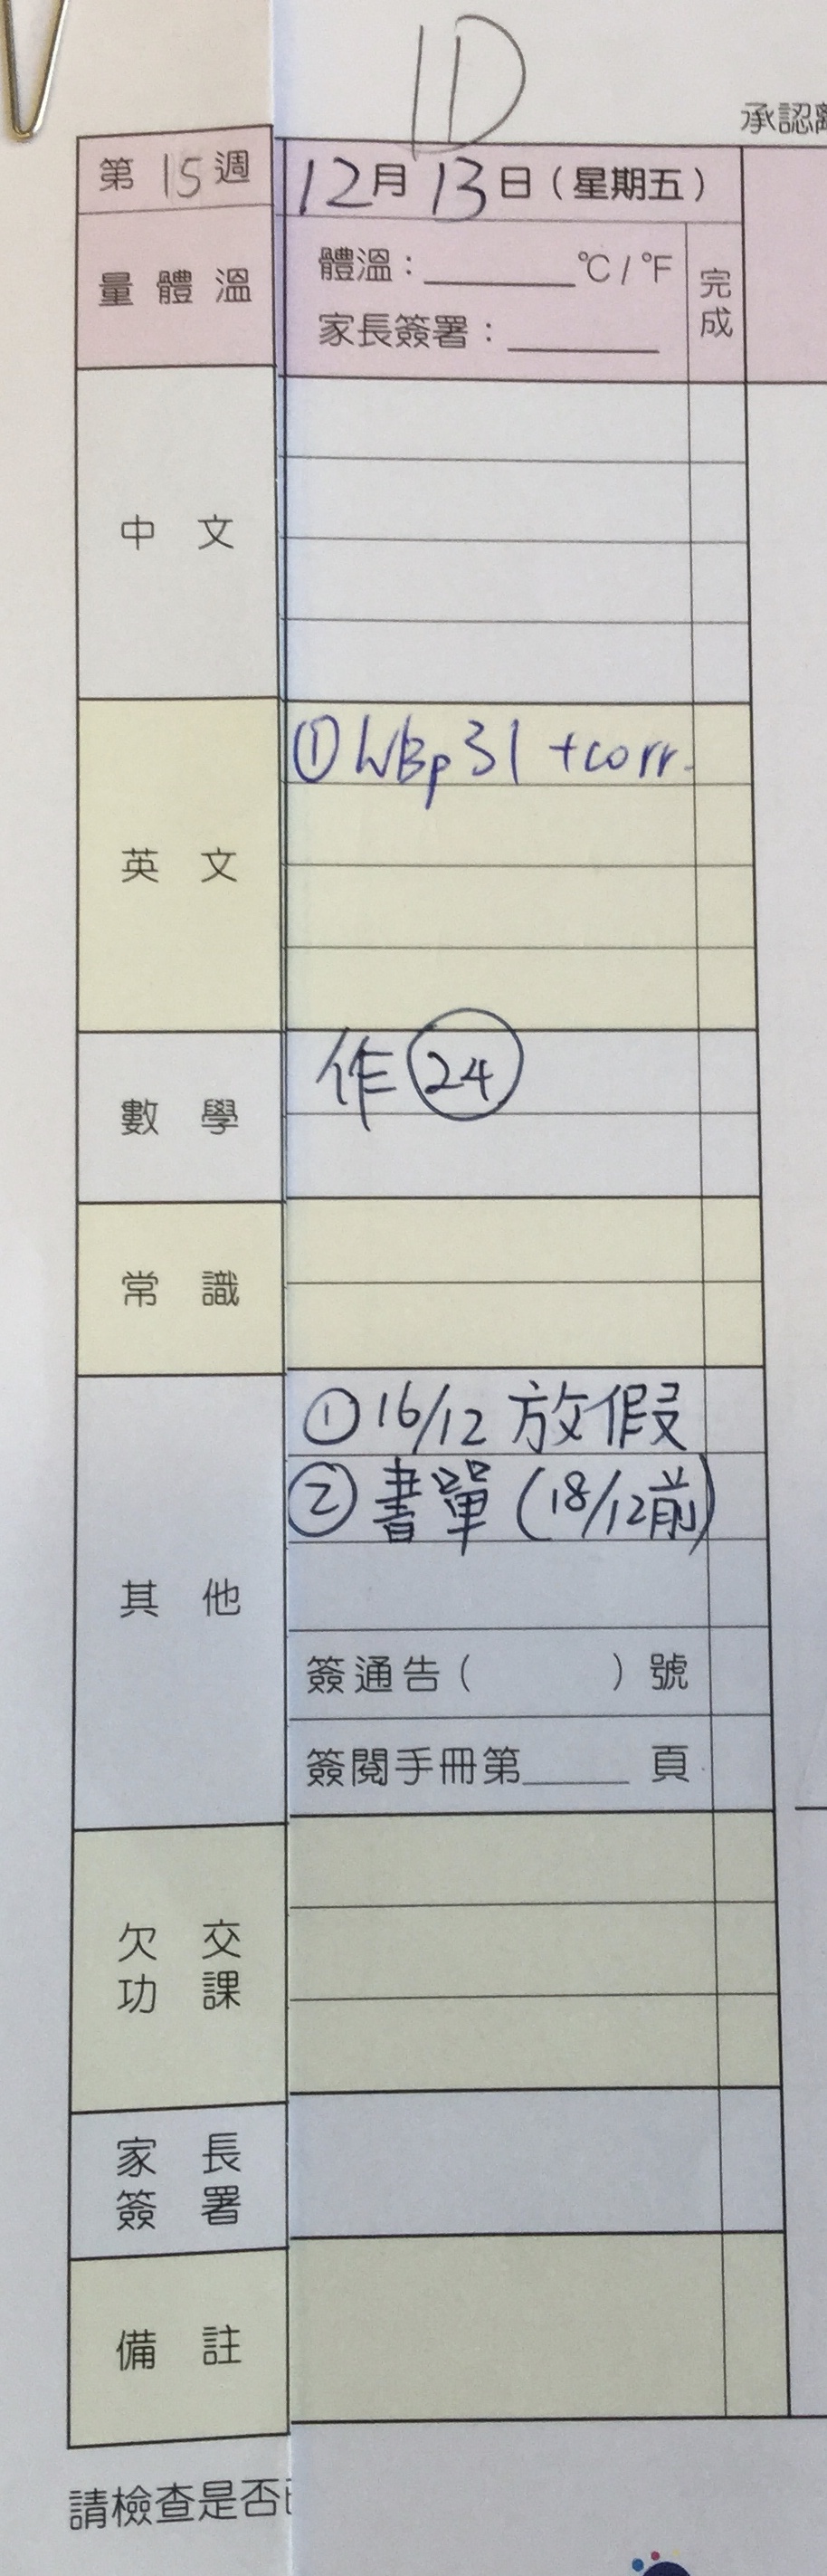 1D
承認
第15週
12月13日（星期五）
量體溫
體溫：______℃/℉
家長簽署：______
完成
中文
英文
①WBp31 +corr.
數學
作㉔
常識
其他
①16/12 放假
②書單(18/12前)
簽通告（　　　）號
簽閱手冊第_____頁
欠交
功課
家長
簽署
備註
請檢查是否